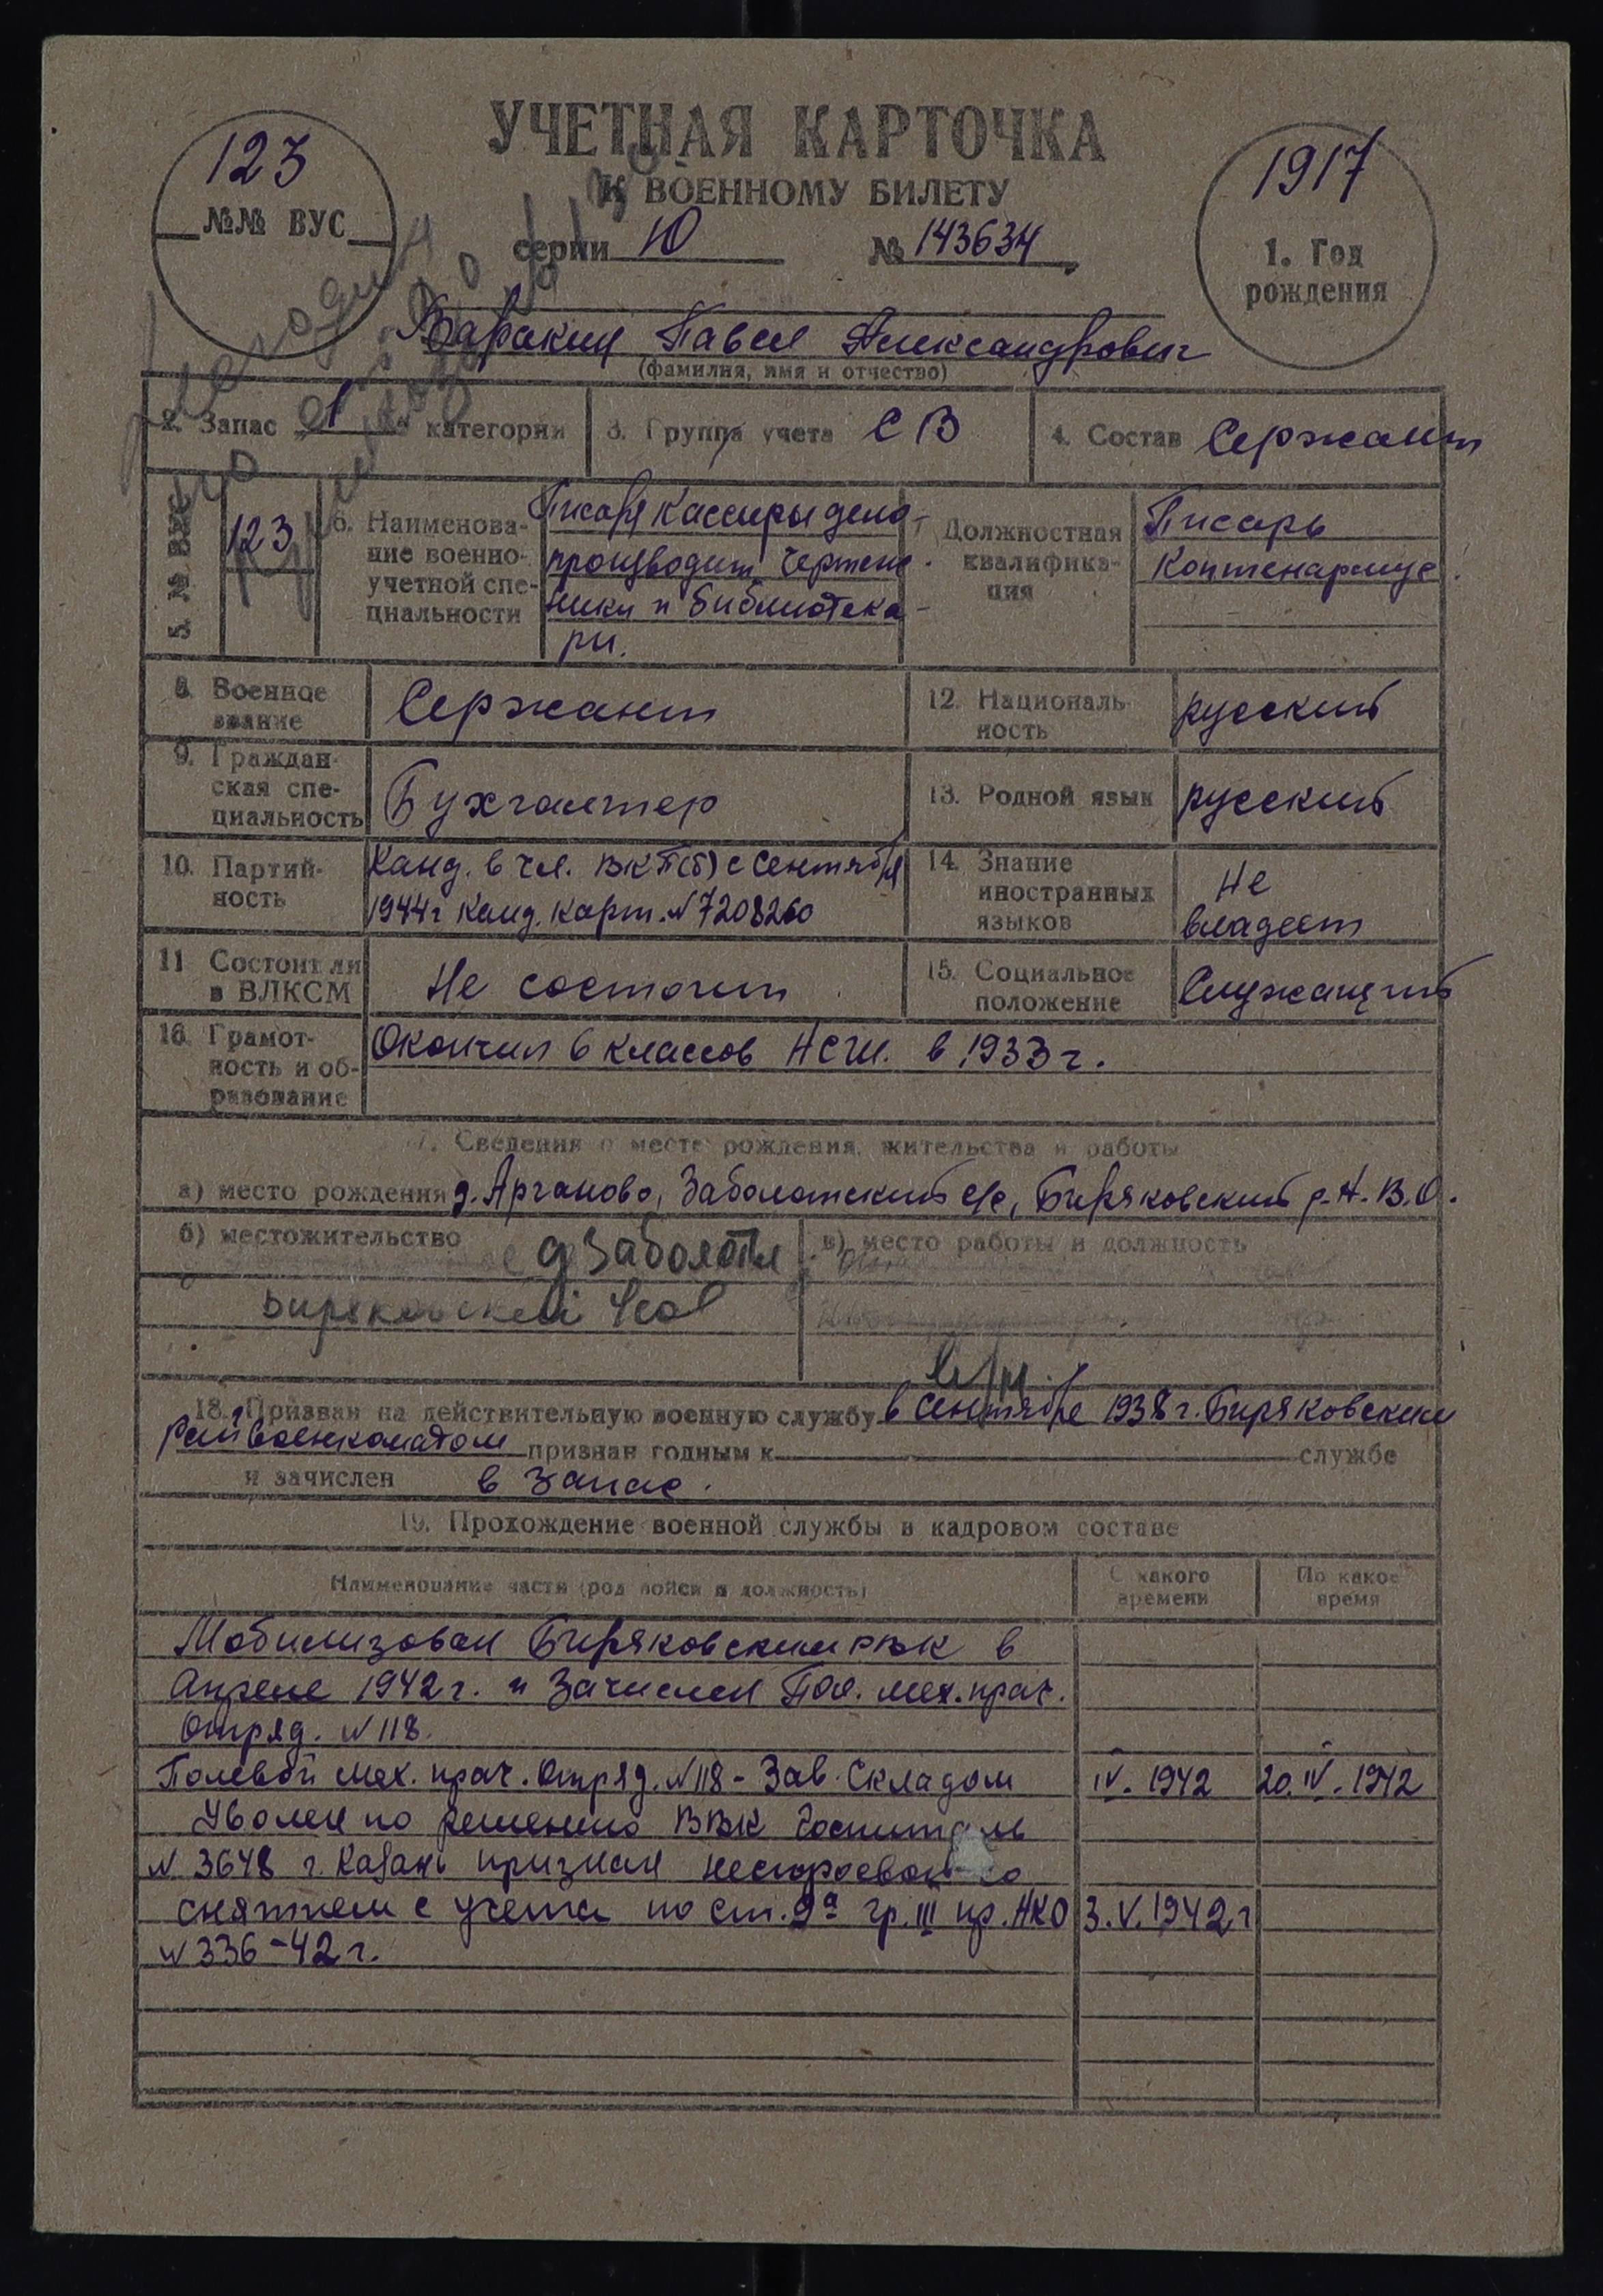 УЧЕТНАЯ КАРТОЧКА
К ВОЕННОМУ БИЛЕТУ
123
№№ ВУС
серии Ю № 143634
1917
1. Год
рождения
Варакин Павел Александрович
(фамилия, имя и отчество)
2. Запас 1 категории
3. Группа учета СВ
4. Состав Сержант
5. № ВУС
123
6. Наименова-
ние военно-
учетной спе-
циальности
Писаря Кассиры дело-
производит. Чертеж-
ники и библиотека-
ри.
7 Должностная
квалифика-
ция
Писарь
Коптенармус.
8. Военное
звание
Сержант
12. Националь-
ность
русский
9. Граждан-
ская спе-
циальность
Бухгалтер
13. Родной язык
русский
10. Партий-
ность
Канд. в чл. ВКП(б) с Сентября
1944г Канд. карт. № 7208260
14. Знание
иностранных
языков
Не
владеет
11 Состоит ли
в ВЛКСМ
Не состоит
15. Социальное
положение
Служащий
16. Грамот-
ность и об-
разование
Окончил 6 классов НСШ. в 1933 г.
17. Сведения о месте рождения, жительства и работы
а) место рождения д. Арганово, Заболотский с/с, Биряковский р-н. В.О.
б) местожительство
д Заболотья
Биряковский
в) место работы и должность
18. Призван на действительную военную службу в Сентябре 1938 г. Биряковским
Райвоенкоматом признан годным к службе
и зачислен в запас.
19. Прохождение военной службы в кадровом составе
Наименование части (род войск и должность)
С какого
времени
По какое
время
Мобилизован Биряковским РВК в
Апреле 1942 г. и Зачислен Пол. мех. прач.
Отряд. № 118.
Полевой мех. прач. Отряд. № 118 - Зав. Складом IV. 1942 20. IV. 1942
Уволен по решению ВВК Госпиталь
№ 3648 г. Казань признан нестроевой со
снятием с учета по ст. 9а гр. III пр. НКО 3. V. 1942 г
№ 336-42 г.